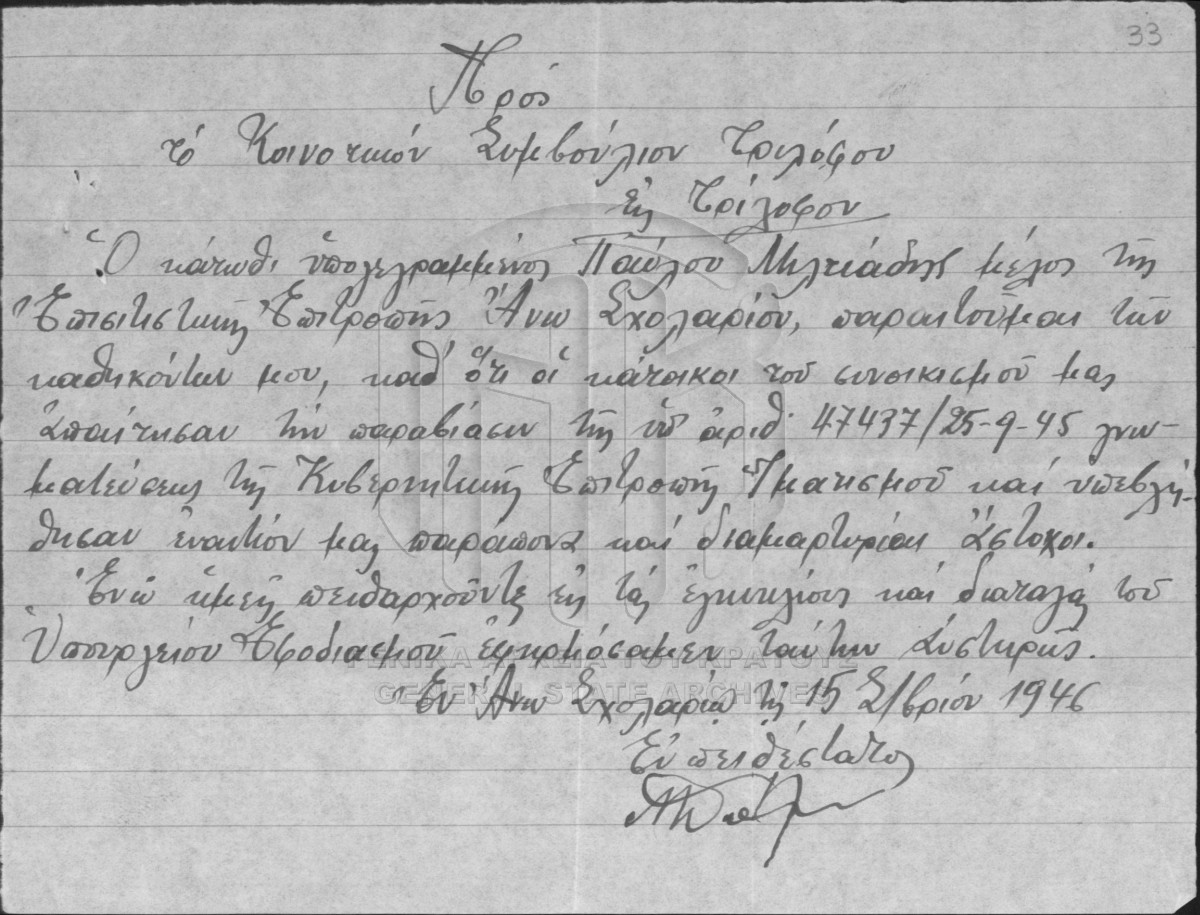 33
Πρός
τό Κοινοτικόν Συμβούλιον Τριλόφου
εἰς Τρίλοφον
Ὁ κάτωθι ὑπογεγραμμένος Παύλου Μιλτιάδης μέλος τῆς
Ἐπισιτιστικῆς Ἐπιτροπῆς Ἄνω Σχολαρίου, παραιτοῦμαι τῶν
καθηκόντων μου, καθ' ὅτι οἱ κάτοικοι τοῦ συνοικισμοῦ μας
ἀπαίτησαν τήν παραβίασιν τῆς ὑπ' ἀριθ. 47437/25-9-45 γνω-
ματεύσεως τῆς Κυβερνητικῆς Ἐπιτροπῆς Ἱματισμοῦ καί ὑπεβλή-
θησαν ἐναντίον μας παράπονα καί διαμαρτυρίαι ἄστοχοι.
Ἐνῶ ἡμεῖς πειθαρχοῦντες εἰς τάς ἐγκυκλίους καί διαταγάς τοῦ
Ὑπουργείου Ἐφοδιασμοῦ ἐφηρμόσαμεν ταύτην αὐστηρῶς.
Ἐν Ἄνω Σχολαρίῳ τῇ 15 Σ/βρίου 1946
Εὐπειθέστατος
ΓΕΝΙΚΑ ΑΡΧΕΙΑ ΤΟΥ ΚΡΑΤΟΥΣ
GENERAL STATE ARCHIVES